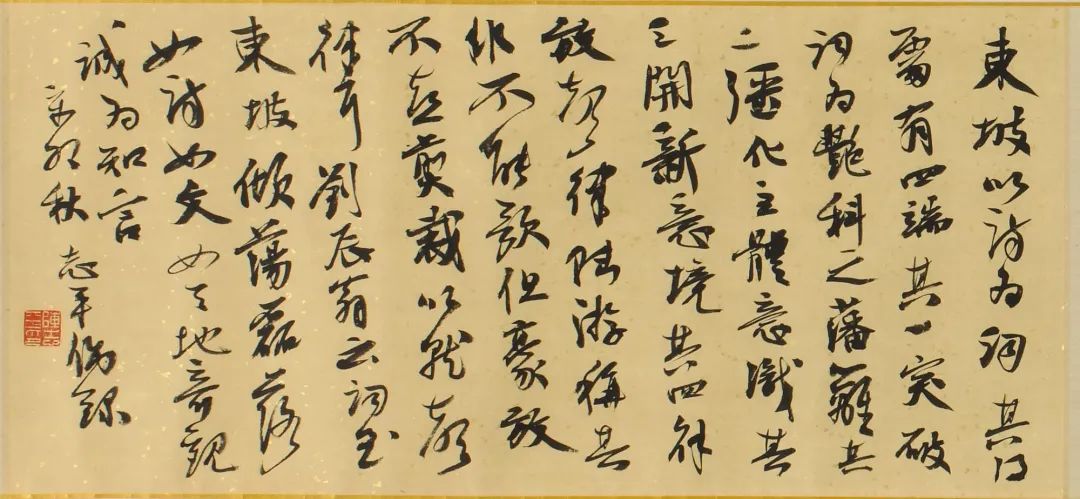 東坡以詩为詞其
當有四端其一突破
詞为艷科之藩籬其
二彊化主體意識其
三開新意境其四解
放聲律陸游稱其
非不能歌但豪放
不喜剪裁以就聲
律耳劉辰翁云詞至
東坡傾蕩磊落
如詩如文如天地奇觀
誠为知言
辛卯秋 志平偶錄